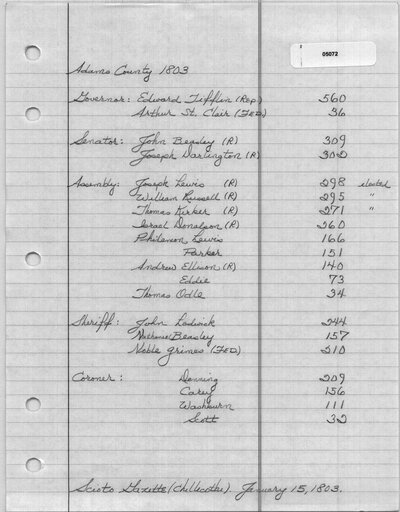 05072
Adams County 1803
Governor: Edward Tifflin (Rep) 560
Arthur St. Clair (FED) 36
Senator: John Beasley (R) 309
Joseph Darlington (R) 302
Assembly: Joseph Lewis (R) 298 elected
William Russell (R) 295 "
Thomas Kirker (R) 271 "
Israel Donalson (R) 260
Philemon Lewis 166
Parker 151
Andrew Ellison (R) 140
Eddie 73
Thomas Odle 34
Sheriff: John Lodwick 244
Nathaniel Beasley 157
Noble Grimes (FED) 210
Coroner: Donning 209
Carey 156
Washburn 111
Scott 32
Scioto Gazette (Chillicothe) January 15, 1803.